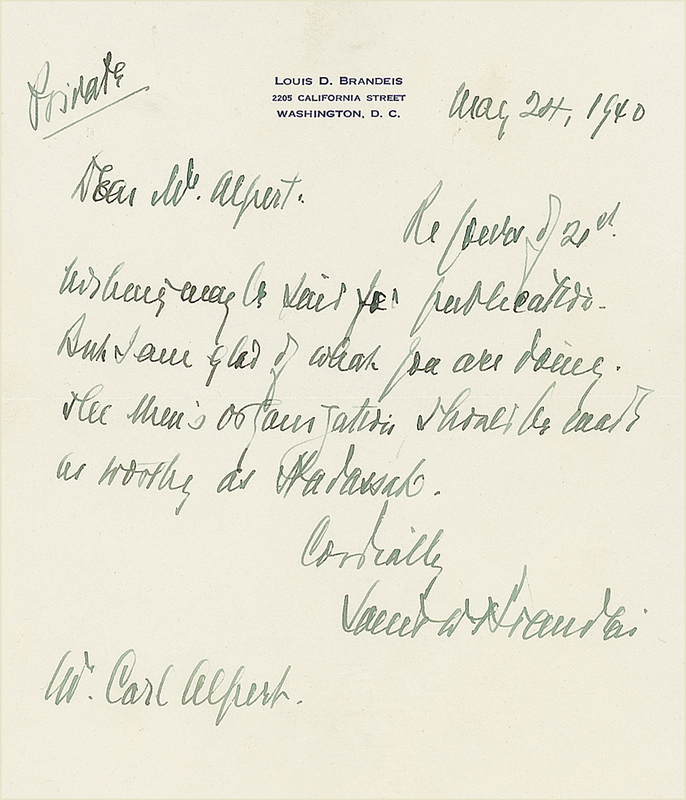 Private
LOUIS D. BRANDEIS
2205 CALIFORNIA STREET
WASHINGTON, D. C.
May 24, 1940
Dear Mr. Alpert:
Re yours of 21st
Nothing may be said for publication.
But I am glad of what you are doing.
The Men's organization should be made
as worthy as Hadassah.
Cordially
Louis D. Brandeis
Mr. Carl Alpert.